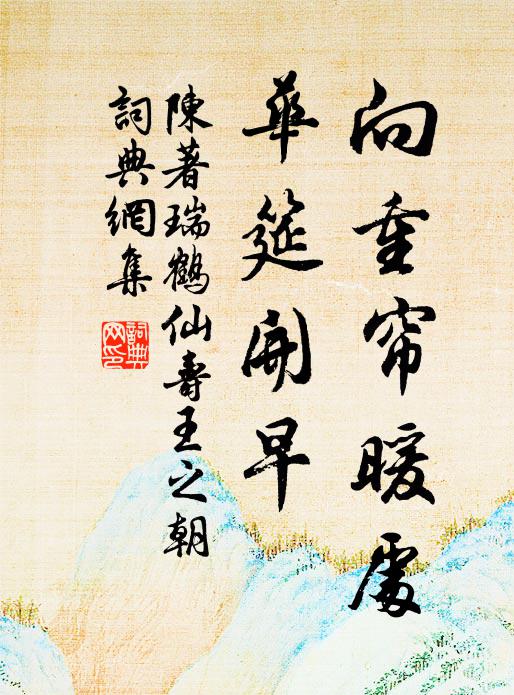 向重帘暖處
華筵開早
陳著瑞鶴仙壽王之朝
詞典網集
詞典網印